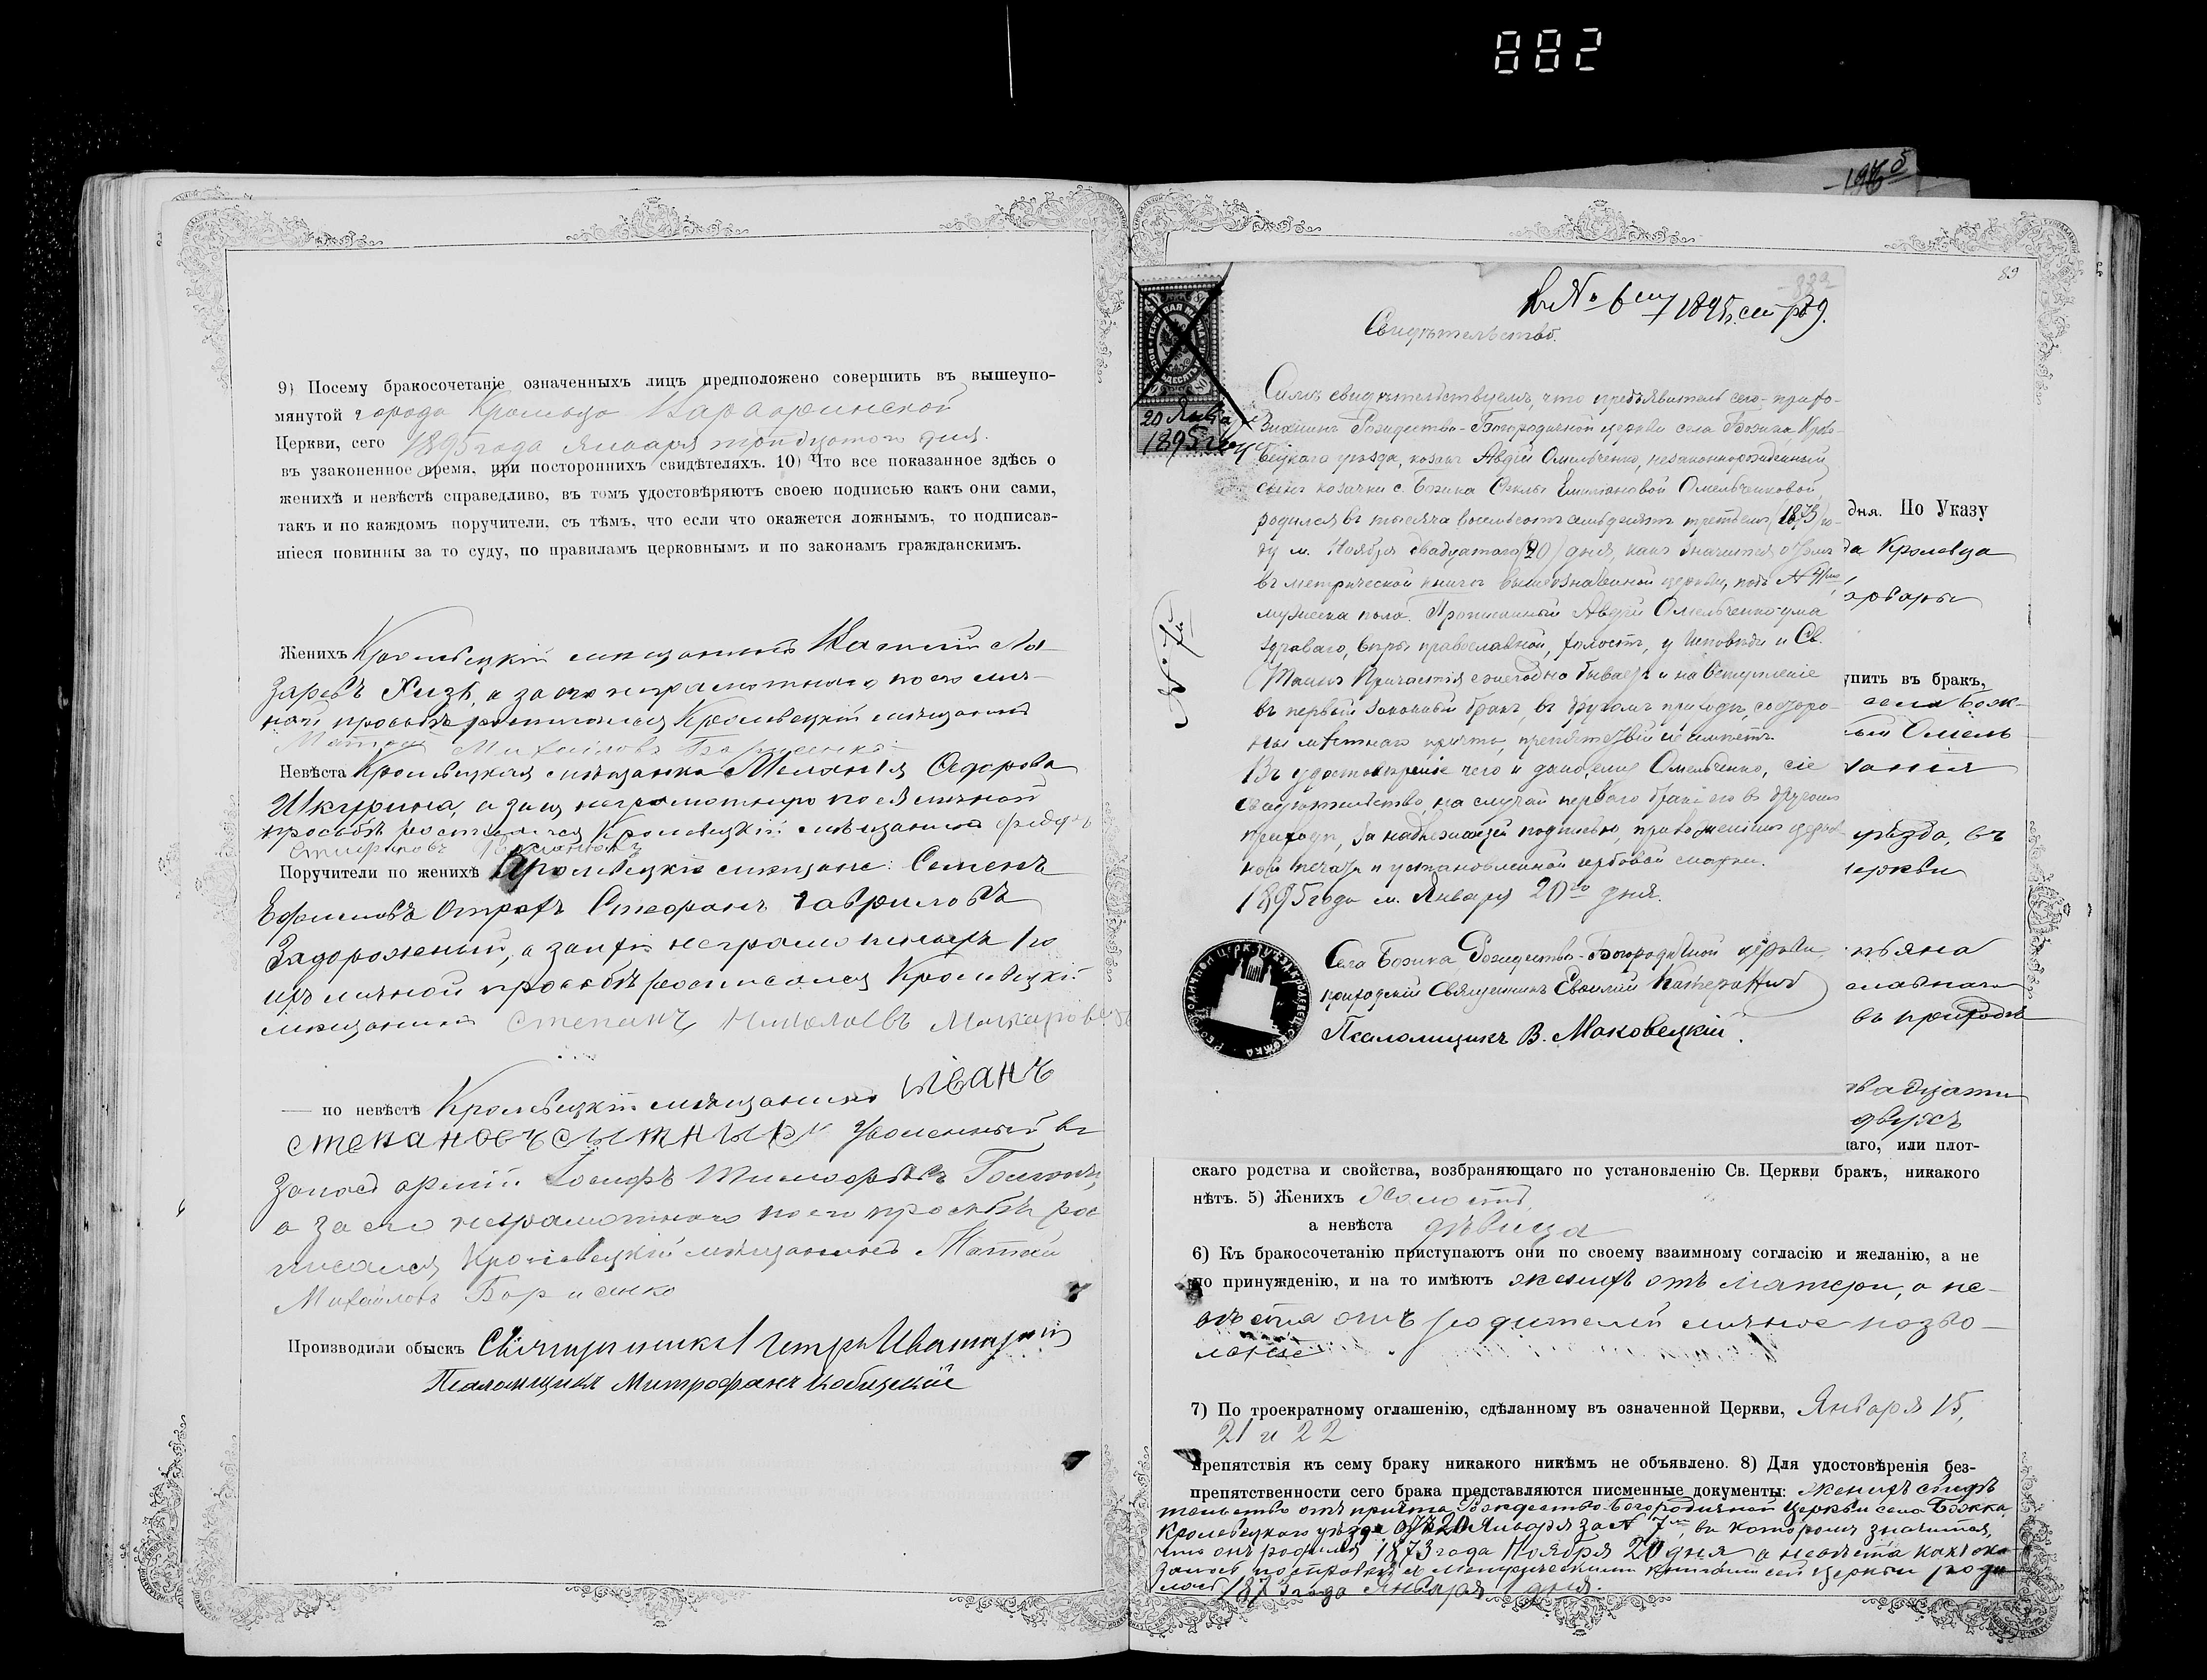 882
9) Посему бракосочетаніе означенныхъ лицъ предположено совершить въ вышеупо-
мянутой города Кролевца Варваринской
Церкви, сего 1895 года Января тридцатого дня.
въ узаконенное время, при постороннихъ свидѣтеляхъ. 10) Что все показанное здѣсь о
женихѣ и невѣстѣ справедливо, въ томъ удостовѣряютъ своею подписью какъ они сами,
такъ и по каждомъ поручители, съ тѣмъ, что если что окажется ложнымъ, то подписав-
шіеся повинны за то суду, по правиламъ церковнымъ и по законамъ гражданскимъ.
Женихъ Кролевецкій мѣщанинъ
заревъ а за его неграмотнаго по его лич-
ной просьбѣ росписался Кролевецкій мѣщанинъ
Матвей Михайловъ Борисенко
Невѣста Кролевецкая мѣщанка Меланія Федорова
Шкурина, а за ея неграмотную по ея личной
просьбѣ росписался Кролевецкій мѣщанинъ Федоръ
Поручители по женихѣ Кролевецкіе мѣщане: Семенъ
Ефимовъ Стефанъ Гавриловъ
Задорожный, а за ихъ неграмотныхъ по
ихъ личной просьбѣ росписался Кролевецкій
мѣщанинъ Степанъ Николаевъ
— по невѣстѣ Кролевецкій мѣщанинъ Иванъ
Степановъ Сытный и уволенный въ
запасъ арміи Іосифъ Тимофѣевъ
а за его неграмотнаго по его просьбѣ рос
писался Кролевецкій мѣщанинъ Матвей
Михайловъ Борисенко
Производили обыскъ Священникъ Петръ
Псаломщикъ Митрофанъ
195
89
къ № 6 1895 ст. 89.
Свидѣтельство.
20 Января
1895 года
№ 7
Симъ свидѣтельствуемъ, что предъявитель сего прихо-
жанинъ Рождество-Богородичной церкви села Божка, Кроле-
вецкаго уѣзда, козакъ Авдій Омельченко, незаконнорожденный
сынъ козачки с. Божка Феклы Емиліановой Омельченковой,
родился въ тысяча восемьсотъ семьдесятъ третьемъ (1873) го-
ду м. Ноября двадцатаго (20) дня, какъ значится о семъ
въ метрической книгѣ вышеозначенной церкви, подъ №
мужеска пола. Прописанный Авдій Омельченко ума
здраваго, вѣры православной, холостъ, у Исповѣди и Св.
Таинъ Причастія ежегодно бываетъ и на вступленіе
въ первый законный бракъ, въ другомъ приходѣ, со сторо-
ны мѣстнаго причта, препятствій не имѣетъ.
Въ удостовѣреніе чего и дано, ему Омельченко, сіе
свидѣтельство, на случай перваго брака его въ другомъ
приходѣ, за надлежащей подписью, приложеніемъ церков
ной печати и установленной гербовой марки.
1895 года м. Января 20го дня.
Села Божка, Рождество-Богородичной церкви,
приходскій Священникъ Евгеній
Псаломщикъ В. Маковецкій.
дня. По Указу
да Кролевца
арвары
упить въ бракъ,
села Бож-
ый Омель
ланія
уѣзда, въ
церкви
въ приходѣ
двадцати
двухъ
наго, или плот-
скаго родства и свойства, возбраняющаго по установленію Св. Церкви бракъ, никакого
нѣтъ. 5) Женихъ холостъ,
а невѣста дѣвица
6) Къ бракосочетанію приступаютъ они по своему взаимному согласію и желанію, а не
по принужденію, и на то имѣютъ женихъ отъ матери, а не-
вѣста отъ родителей личное позво-
леніе
7) По троекратному оглашенію, сдѣланному въ означенной Церкви, Января 15,
21 и 22
препятствія къ сему браку никакого никѣмъ не объявлено. 8) Для удостовѣренія без-
препятственности сего брака представляются писменные документы: женихъ свидѣ
тельство отъ причта Рождество-Богородичной Церкви села Божка,
Кролевецкаго уѣзда отъ 20 Января за № 7, въ которомъ значится,
что онъ родился 1873 года Ноября 20 дня, а невѣста какъ ока
залось по справкѣ съ Метрическими книгами сей Церкви роди
лась 1873 года Января 1 дня.